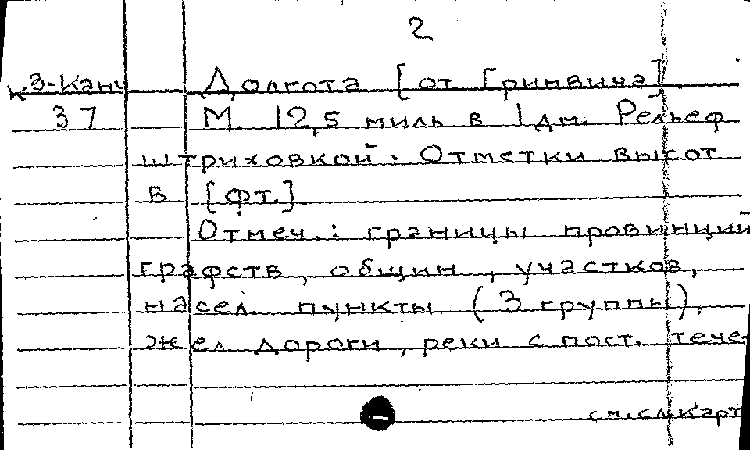 2
к З-Канч Долгота [от Гринвича]
37 М. 12,5 миль в 1 дм. Рельеф
штриховкой. Отметки высот
в [фт.]
Отмеч.: границы провинций
графств, общин, участков,
насел. пункты (3 группы),
жел. дороги, реки с пост. тече-
см. сл. карт